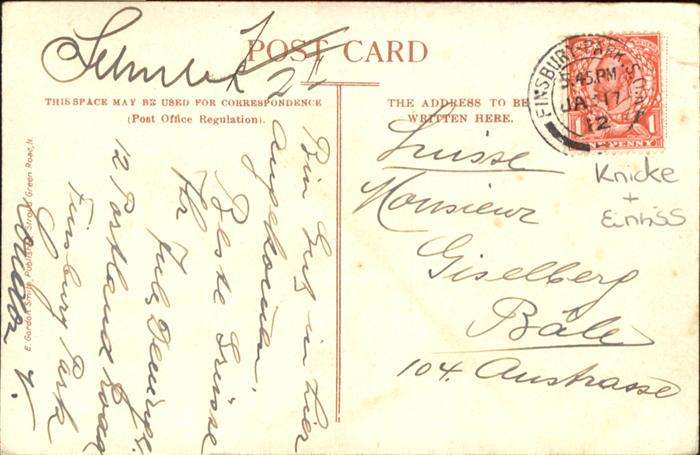 POST CARD
THIS SPACE MAY BE USED FOR CORRESPONDENCE
(Post Office Regulation).
THE ADDRESS TO BE
WRITTEN HERE.
FINSBURY PARK
5.45 PM
JA 17
12
1 PENNY
Knicke
+
Einriss
Suisse
Monsieur
Giselberg
Bâle
104. Austrasse
Bin gut in hier
angekommen.
Beste Grüsse
Ihr
12 Portland Road
Finsbury Park
London N.
E. Gordon Smith, Publisher, Stroud Green Road, N.